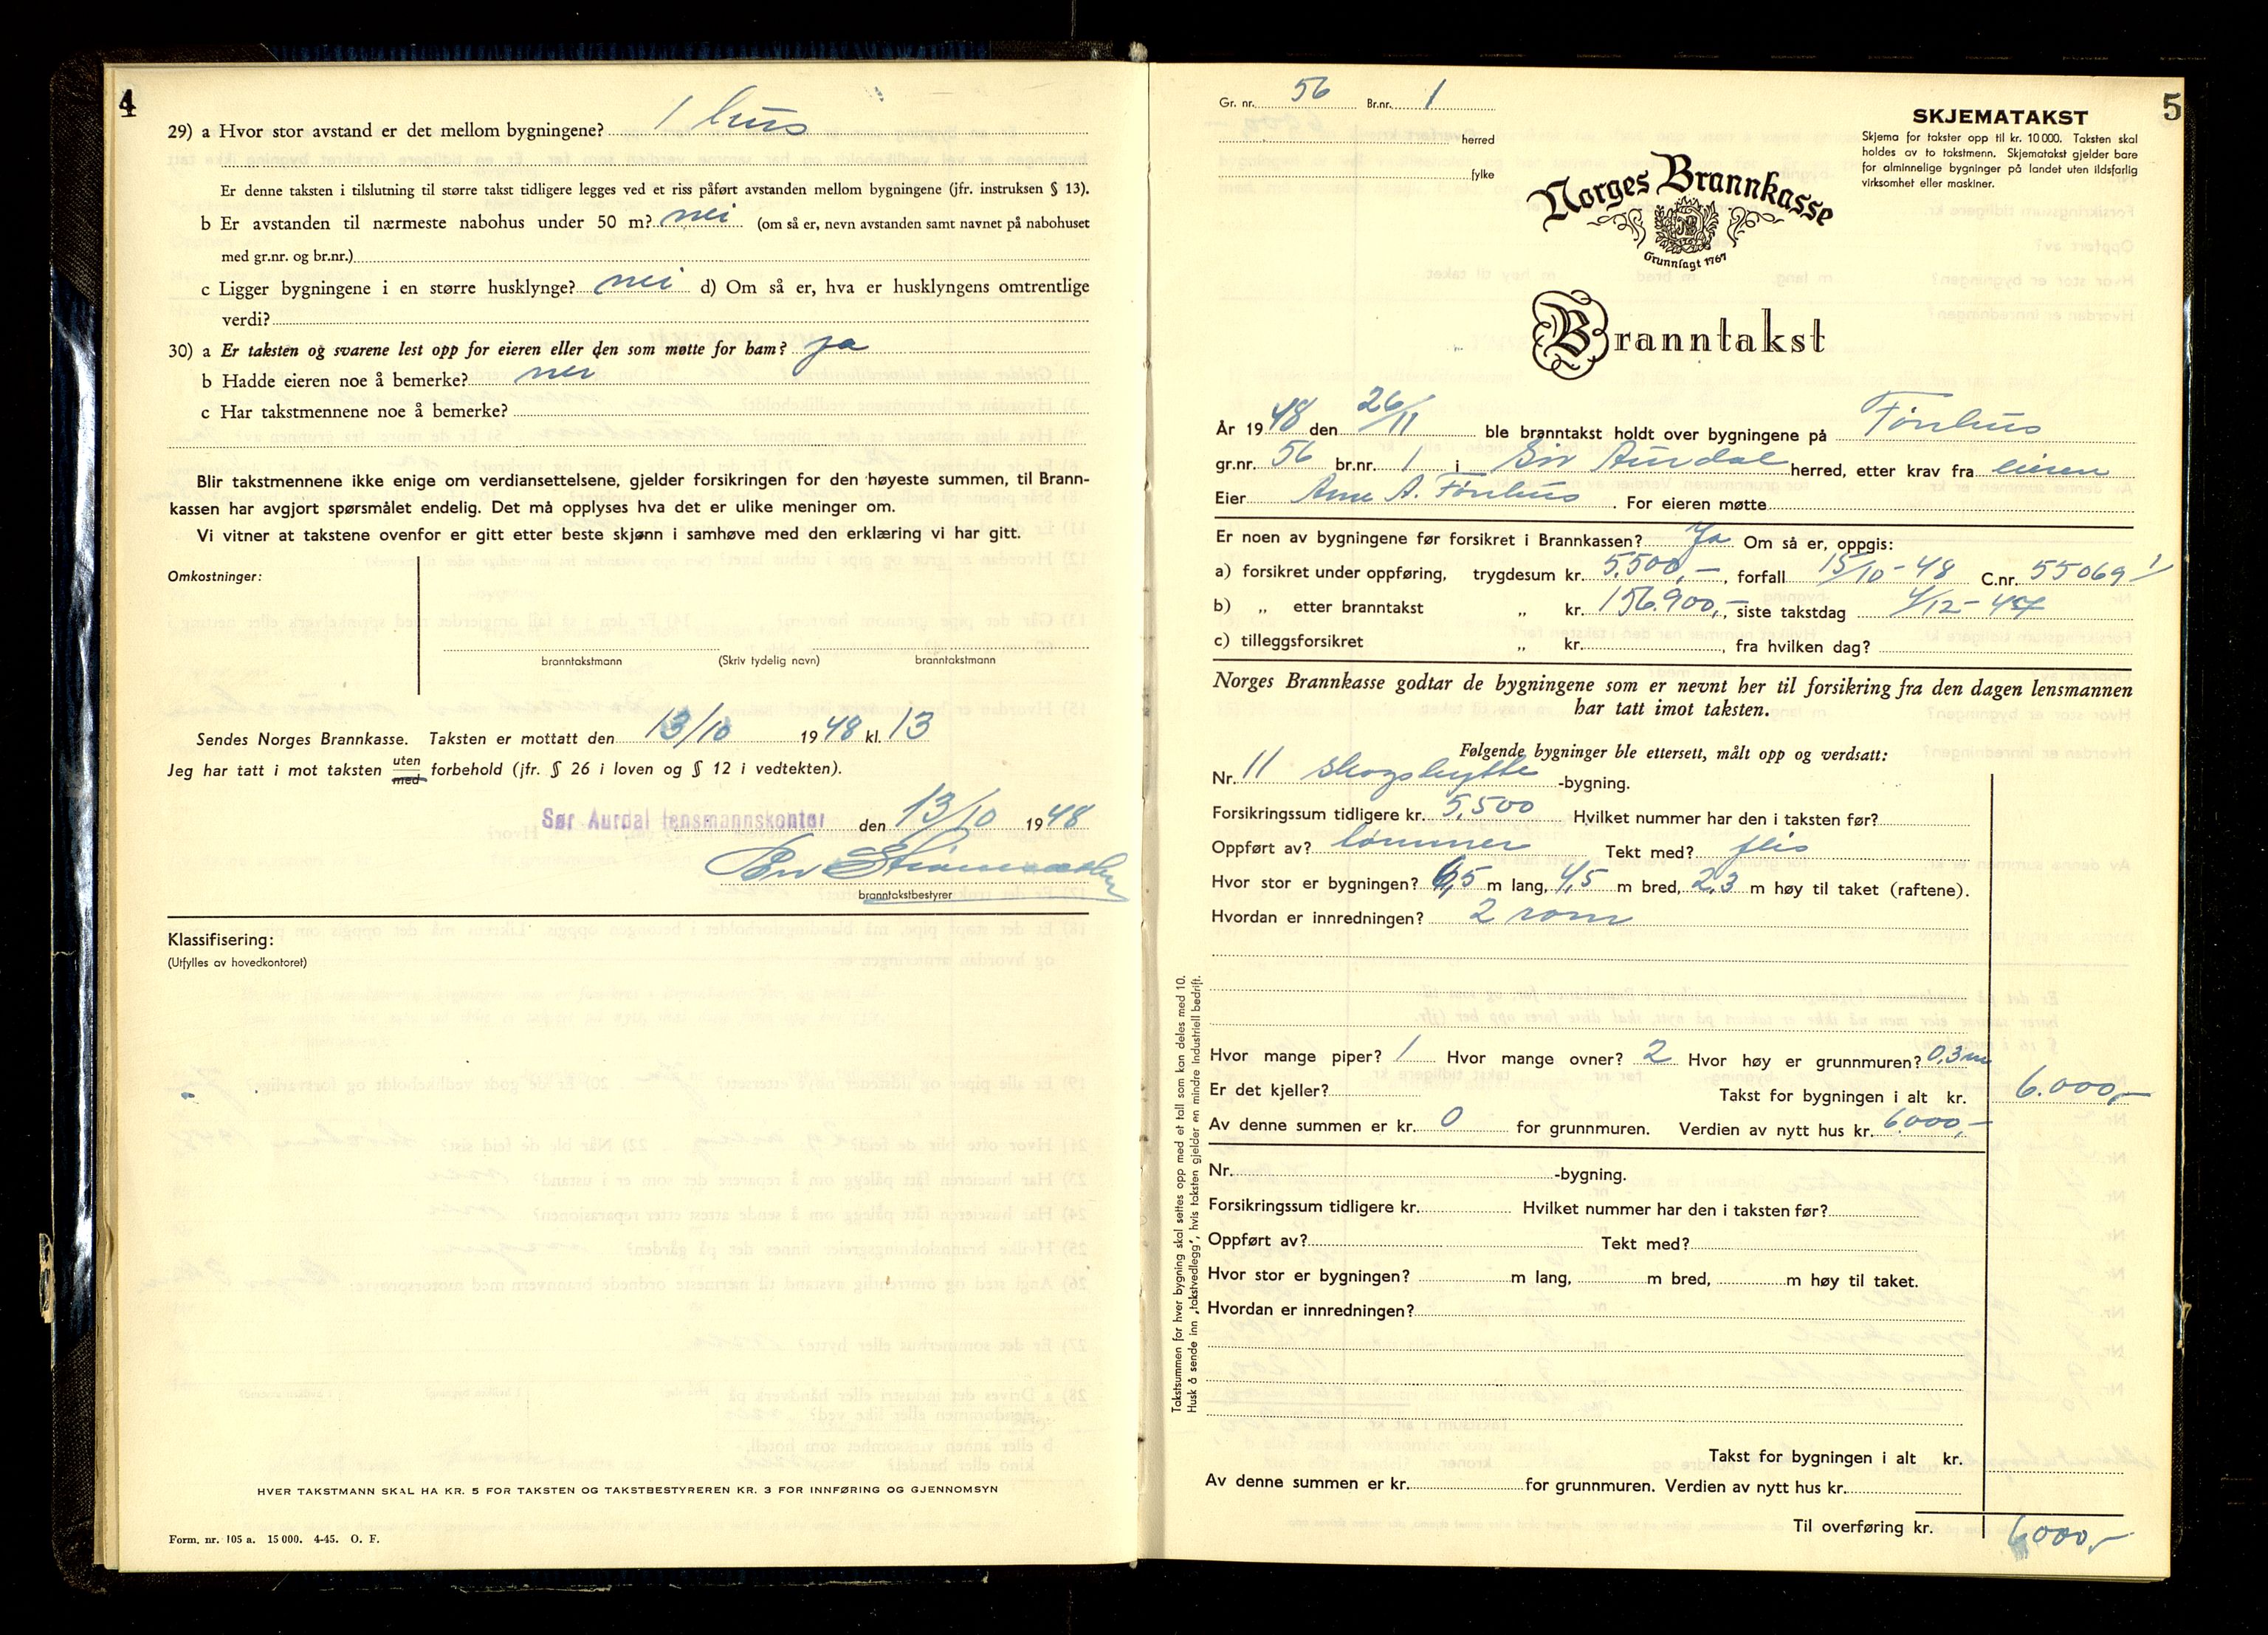 4
29) a Hvor stor avstand er det mellom bygningene? 1 hus
Er denne taksten i tilslutning til større takst tidligere legges ved et riss påført avstanden mellom bygningene (jfr. instruksen § 13).
b Er avstanden til nærmeste nabohus under 50 m? nei (om så er, nevn avstanden samt navnet på nabohuset
med gr.nr. og br.nr.)
c Ligger bygningene i en større husklynge? nei d) Om så er, hva er husklyngens omtrentlige
verdi?
30) a Er taksten og svarene lest opp for eieren eller den som møtte for ham? ja
b Hadde eieren noe å bemerke? nei
c Har takstmennene noe å bemerke?
Blir takstmennene ikke enige om verdiansettelsene, gjelder forsikringen for den høyeste summen, til Brann-
kassen har avgjort spørsmålet endelig. Det må opplyses hva det er ulike meninger om.
Vi vitner at takstene ovenfor er gitt etter beste skjønn i samhøve med den erklæring vi har gitt.
Omkostninger:
branntakstmann (Skriv tydelig navn) branntakstmann
Sendes Norges Brannkasse. Taksten er mottatt den 13/10 1948 kl. 13
Jeg har tatt i mot taksten uten med forbehold (jfr. § 26 i loven og § 12 i vedtekten).
Sør Aurdal lensmannskontor den 13/10 1948
branntakstbestyrer
Klassifisering:
(Utfylles av hovedkontoret)
HVER TAKSTMANN SKAL HA KR. 5 FOR TAKSTEN OG TAKSTBESTYREREN KR. 3 FOR INNFØRING OG GJENNOMSYN
Form. nr. 105 a. 15 000. 4-45. O. F.
5
Gr. nr. 56 Br.nr. 1
herred
fylke
SKJEMATAKST
Skjema for takster opp til kr. 10 000. Taksten skal
holdes av to takstmenn. Skjematakst gjelder bare
for alminnelige bygninger på landet uten ildsfarlig
virksomhet eller maskiner.
Norges Brannkasse
Grunnlagt 1767
Branntakst
År 1948 den 26/11 ble branntakst holdt over bygningene på Fønhus
gr.nr. 56 br.nr. 1 i Sør Aurdal herred, etter krav fra eieren
Eier Arne A. Fønhus. For eieren møtte
Er noen av bygningene før forsikret i Brannkassen? Ja Om så er, oppgis:
a) forsikret under oppføring, trygdesum kr. 5.500,-, forfall 15/10-48 C.nr. 55069
b) „ etter branntakst „ kr. 156.900,-, siste takstdag 4/12-47
c) tilleggsforsikret „ kr. , fra hvilken dag?
Norges Brannkasse godtar de bygningene som er nevnt her til forsikring fra den dagen lensmannen
har tatt imot taksten.
Følgende bygninger ble ettersett, målt opp og verdsatt:
Nr. 11 skogshytte -bygning.
Forsikringssum tidligere kr. 5,500 Hvilket nummer har den i taksten før?
Oppført av? tømmer Tekt med? flis
Hvor stor er bygningen? 6,5 m lang, 4,5 m bred, 2,3 m høy til taket (raftene).
Hvordan er innredningen? 2 rom
Hvor mange piper? 1 Hvor mange ovner? 2 Hvor høy er grunnmuren? 0,3 m
Er det kjeller? Takst for bygningen i alt kr. 6.000,-
Av denne summen er kr. 0 for grunnmuren. Verdien av nytt hus kr. 6000,-
Nr. -bygning.
Forsikringssum tidligere kr. Hvilket nummer har den i taksten før?
Oppført av? Tekt med?
Hvor stor er bygningen? m lang, m bred, m høy til taket.
Hvordan er innredningen?
Takst for bygningen i alt kr.
Av denne summen er kr. for grunnmuren. Verdien av nytt hus kr.
Til overføring kr. 6000,-
Takstsummen for hver bygning skal settes opp med et tall som kan deles med 10.
Husk å sende inn „takstvedlegg", hvis taksten gjelder en mindre industriell bedrift.